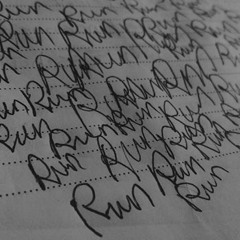 Run Run Run
Run Run Run Run
Run Run Run Run
Run Run Run Run
Run Run Run Run
Run Run Run Run
Run Run Run
Run